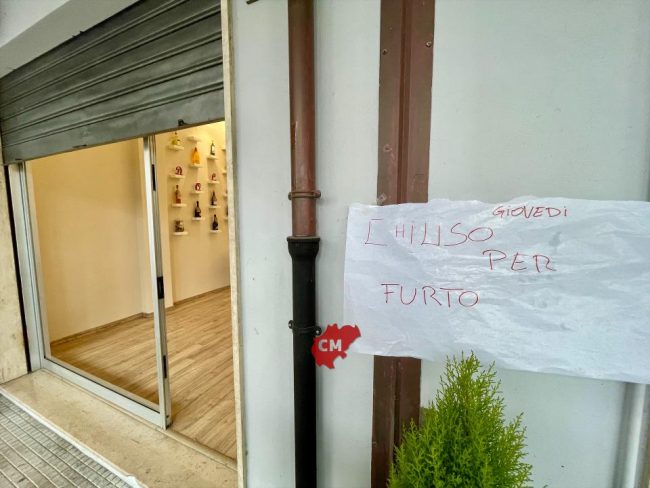 GIOVEDI
CHIUSO
PER
FURTO
CM